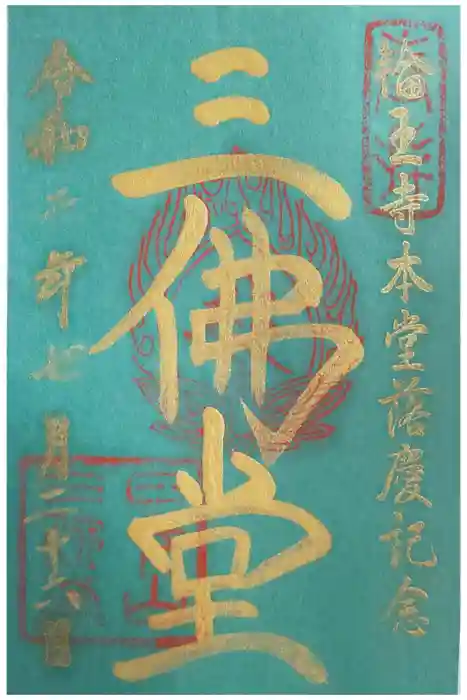 輪王寺本堂落慶記念
三佛堂
令和二年七月二十六日